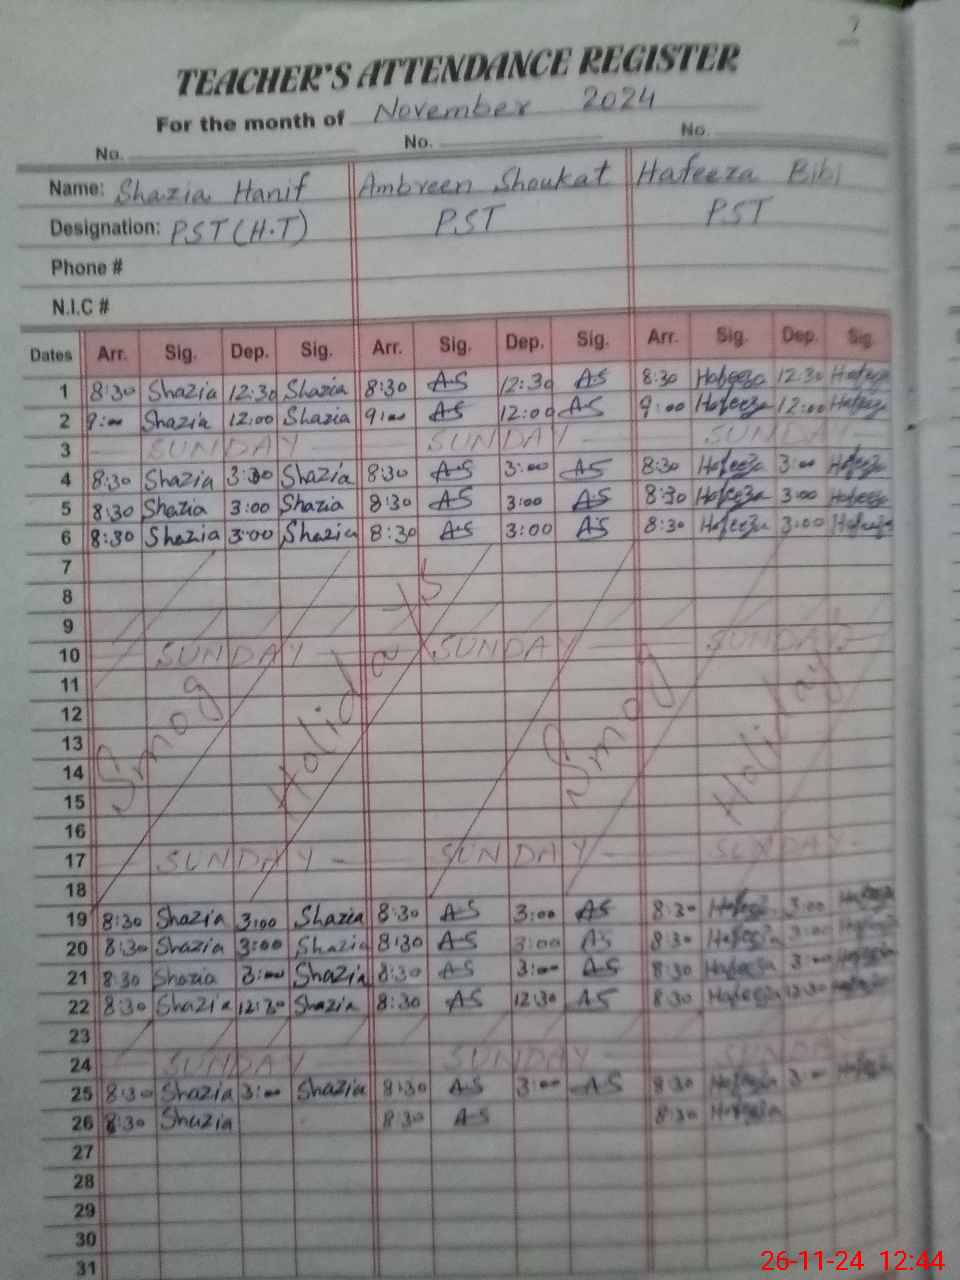 7
TEACHER'S ATTENDANCE REGISTER
For the month of November 2024
No. No. No.
Name: Shazia Hanif Ambreen Shoukat Hafeeza Bibi
Designation: PST (H.T) PST PST
Phone #
N.I.C #
Dates Arr. Sig. Dep. Sig. Arr. Sig. Dep. Sig. Arr. Sig. Dep. Sig.
1 8:30 Shazia 12:30 Shazia 8:30 AS 12:30 AS 8:30 Hafeeza 12:30 Hafeeza
2 9:00 Shazia 12:00 Shazia 9:00 AS 12:00 AS 9:00 Hafeeza 12:00 Hafeeza
3 SUNDAY SUNDAY SUNDAY
4 8:30 Shazia 3:00 Shazia 8:30 AS 3:00 AS 8:30 Hafeeza 3:00 Hafeeza
5 8:30 Shazia 3:00 Shazia 8:30 AS 3:00 AS 8:30 Hafeeza 3:00 Hafeeza
6 8:30 Shazia 3:00 Shazia 8:30 AS 3:00 AS 8:30 Hafeeza 3:00 Hafeeza
7
8
9
10 SUNDAY SUNDAY SUNDAY
11
12
13
Smog Holidays Smog Holiday
14
15
16
17 SUNDAY SUNDAY SUNDAY
18
19 8:30 Shazia 3:00 Shazia 8:30 AS 3:00 AS 8:30 Hafeeza 3:00 Hafeeza
20 8:30 Shazia 3:00 Shazia 8:30 AS 3:00 AS 8:30 Hafeeza 3:00 Hafeeza
21 8:30 Shazia 3:00 Shazia 8:30 AS 3:00 AS 8:30 Hafeeza 3:00 Hafeeza
22 8:30 Shazia 12:30 Shazia 8:30 AS 12:30 AS 8:30 Hafeeza 12:30 Hafeeza
23
24 SUNDAY SUNDAY SUNDAY
25 8:30 Shazia 3:00 Shazia 8:30 AS 3:00 AS 8:30 Hafeeza 3:00 Hafeeza
26 8:30 Shazia 8:30 AS 8:30 Hafeeza
27
28
29
30
31
26-11-24 12:44